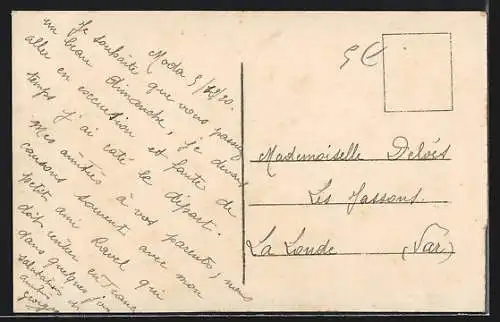 Moda 5/12/20.
Je souhaite que vous passiez
un beau dimanche, je devais
aller en excursion et faute de
temps j'ai raté le départ.
Mes amitiés à vos parents, nous
causons souvent avec mon
petit ami Ravel qui
doit rentrer en France
dans quelques jours
salutations et
amitiés
Georges
5 €
Mademoiselle Delois
Les Jassons
La Londe (Var)